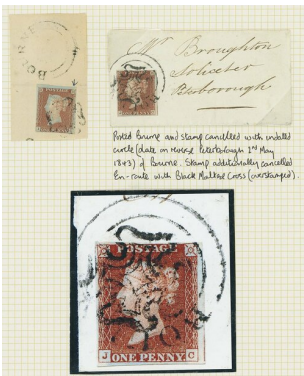 BOURNE
Mr Broughton
Solicitor
Peterborough
Posted Bourne and stamp cancelled with undated
circle (date on reverse Peterborough 2nd May
1843) of Bourne. Stamp additionally cancelled
En-route with Black Maltese Cross (overstamped).
POSTAGE
J C
ONE PENNY.